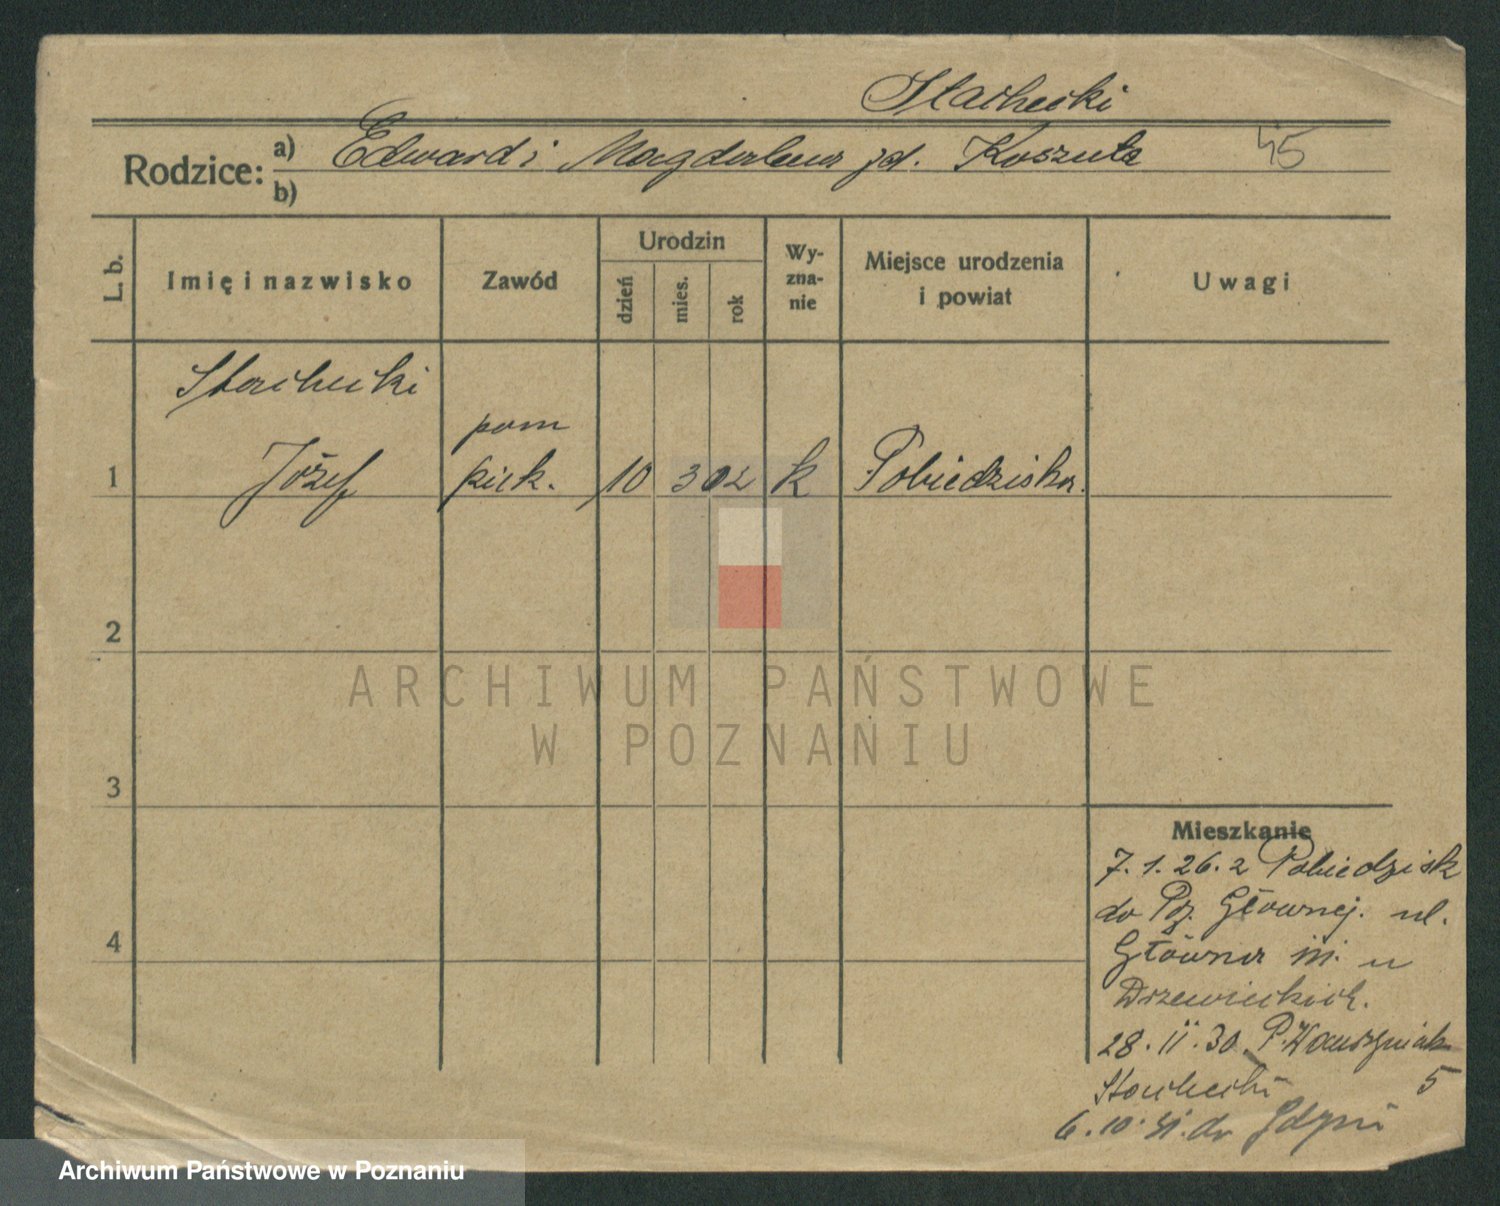 Stachecki
Rodzice: a) Edward i Magdalena zd. Koszuta 45
b)
L. b. Imię i nazwisko Zawód Urodzin dzień mies. rok Wy-zna-nie Miejsce urodzenia i powiat Uwagi
Stachecki
pom
1 Józef piek. 10 3 02 k Pobiedziska.
2
3
4
Mieszkanie
7. 1. 26. z Pobiedzisk
do Pozn. Głównej. ul.
Główna III. u
Drzewieckich.
28. II. 30. P. Wawrzyniak
Stachecki 5
6. 10. 31. do Gdyni
ARCHIWUM PAŃSTWOWE
W POZNANIU
Archiwum Państwowe w Poznaniu